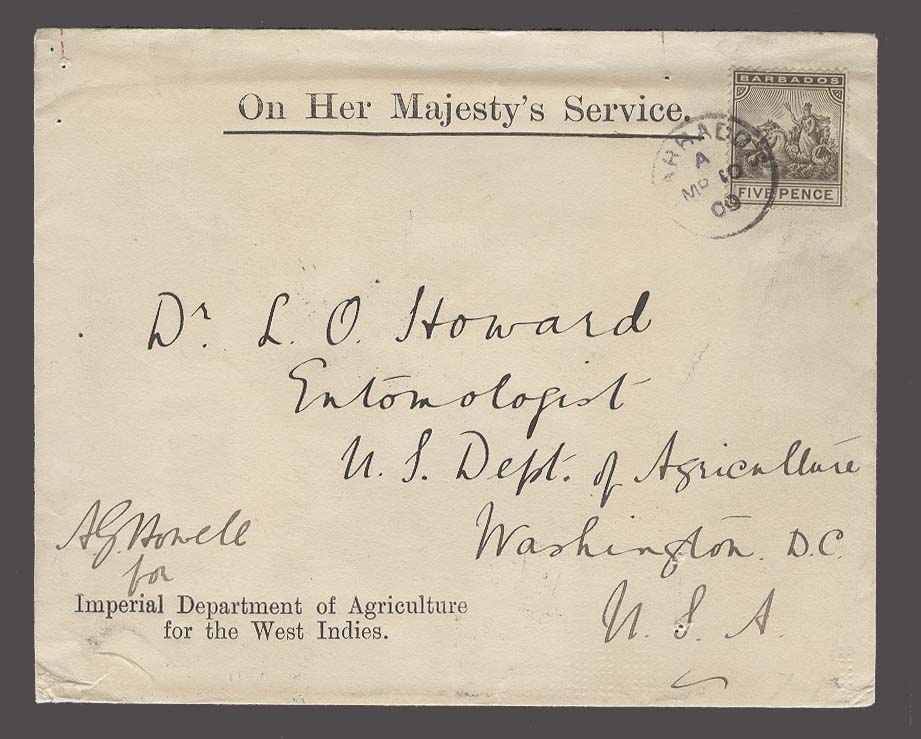 On Her Majesty's Service.
BARBADOS
FIVE PENCE
BARBADOS
A
MR 10
09
Dr. L. O. Howard
Entomologist
U. S. Dept. of Agriculture
Washington. D.C.
U. S. A.
A.G. Howell
for
Imperial Department of Agriculture
for the West Indies.